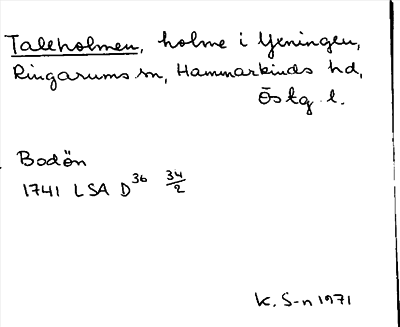 Taleholmen, holme i Yxningen,
Ringarums sn, Hammarkinds hd,
Östg. l.
Bodön
1741 LSA D36 34/2
K. S-n 1971